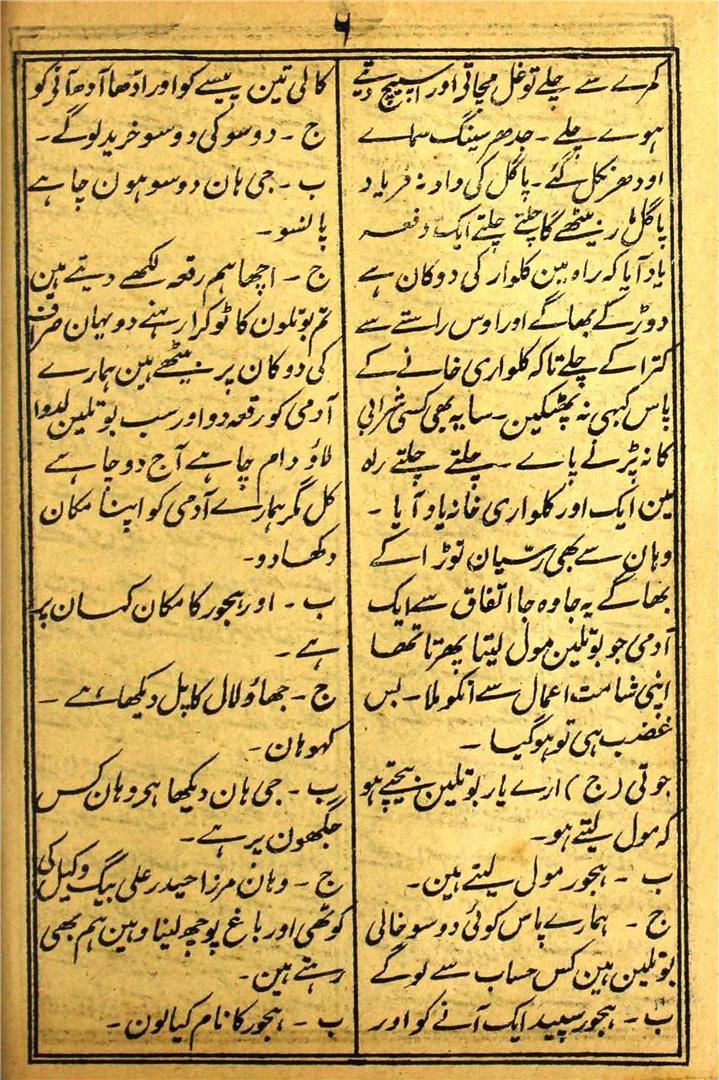 ۶
کمرے سے چلے تو غل مچاتی اور اسپیچ دیتے
ہوے چلے ۔ جدھر سینگ سماے
اودھر نکل گئے ۔ پاگل کی داد نہ فریاد
پاگل ہار بیٹھے گا چلتے چلتے ایک دفعہ
یاد آیا کہ راہ مین کلوار کی دوکان ہے
دوڑ کے بھاگے اور اوس راستے سے
کترا کے چلے تاکہ کلواری خانے کے
پاس کبہی نہ پھٹکین ۔ سایہ بھی کسی شرابی
کا نہ پڑنے پاے ۔ چلتے چلتے راہ
مین ایک اور کلواری خانہ یاد آیا ۔
وہان سے بھی رسّیان توڑا کے
بھاگے یہ جا وہ جا اتفاق سے ایک
آدمی جو بوتلین مول لیتا پھرتا تھا
اپنی شامت اعمال سے انکو ملا ۔ بس
غضب ہی تو ہو گیا ۔
جوتی (ج) ارے یار بوتلین بیچتے ہو
کہ مول لیتے ہو ۔
ب ۔ ہجور مول لیتے ہین ۔
ج ۔ ہمارے پاس کوئی دو سو خالی
بوتلین ہین کس حساب سے لو گے
ب ۔ ہجور سپید ایک آنے کو اور
کالی تین پیسے کو اور ادّھا آدھ آنی کو
ج ۔ دو سو کی دو سو خرید لو گے ۔
ب ۔ جی ہان دو سو ہون چاہے
پانسو ۔
ج ۔ اچھا ہم رقعہ لکھے دیتے ہین
تم بوتلون کا ٹوکرا رہنے دو یہان صراف
کی دوکان پر بیٹھے ہین ہمارے
آدمی کو رقعہ دو اور سب بوتلین لدوا
لاؤ دام چاہے آج دو چاہے
کل مگر ہمارے آدمی کو اپنا مکان
دکھا دو ۔
ب ۔ اور ہجور کا مکان کہان پر
ہے ۔
ج ۔ جھاؤ لال کا پل دیکھا ہے ۔
کہو ہان ۔
ب ۔ جی ہان دیکھا ہر وہان کس
جگھون پر ہے ۔
ج ۔ وہان مرزا حیدر علی بیگ وکیل کی
کوٹھی اور باغ پوچھ لینا وہین ہم بھی
رہتے ہین ۔
ب ۔ ہجور کا نام کیا لون ۔